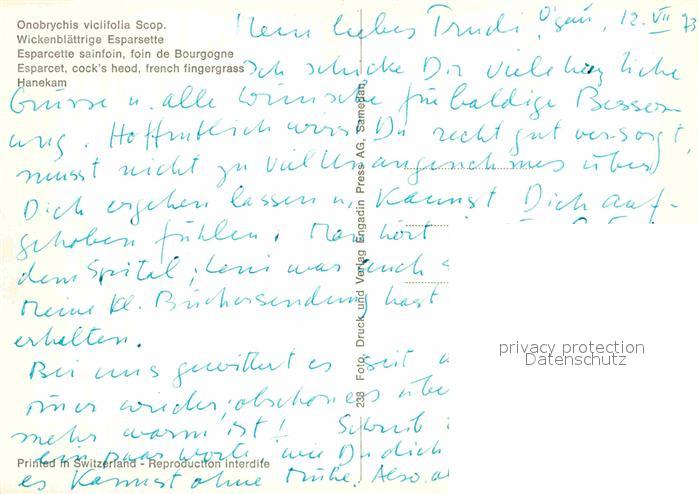 Onobrychis viciifolia Scop.
Wickenblättrige Esparsette
Esparcette sainfoin, foin de Bourgogne
Esparcet, cock's head, french fingergrass
Hanekam
Mein liebes Trudi, 12. VII 73
Ich schicke Dir viele herzliche
Grüsse u. alle Wünsche für baldige Besser-
ung. Hoffentlich wirst Du recht gut versorgt,
musst nicht zu viel Unangenehmes über
Dich ergehen lassen u. kannst Dich auf-
gehoben fühlen. Man hört
dem Spital; Leni war auch
Meine kl. Büchersendung hast
erhalten.
Bei uns gewittert es seit
immer wieder, obschon es
mehr warm ist! Schreib
ein paar Worte wie Du dich
es kannst ohne Mühe. Also
238 Foto, Druck und Verlag Engadin Press AG, Samedan
privacy protection
Datenschutz
Printed in Switzerland - Reproduction interdite